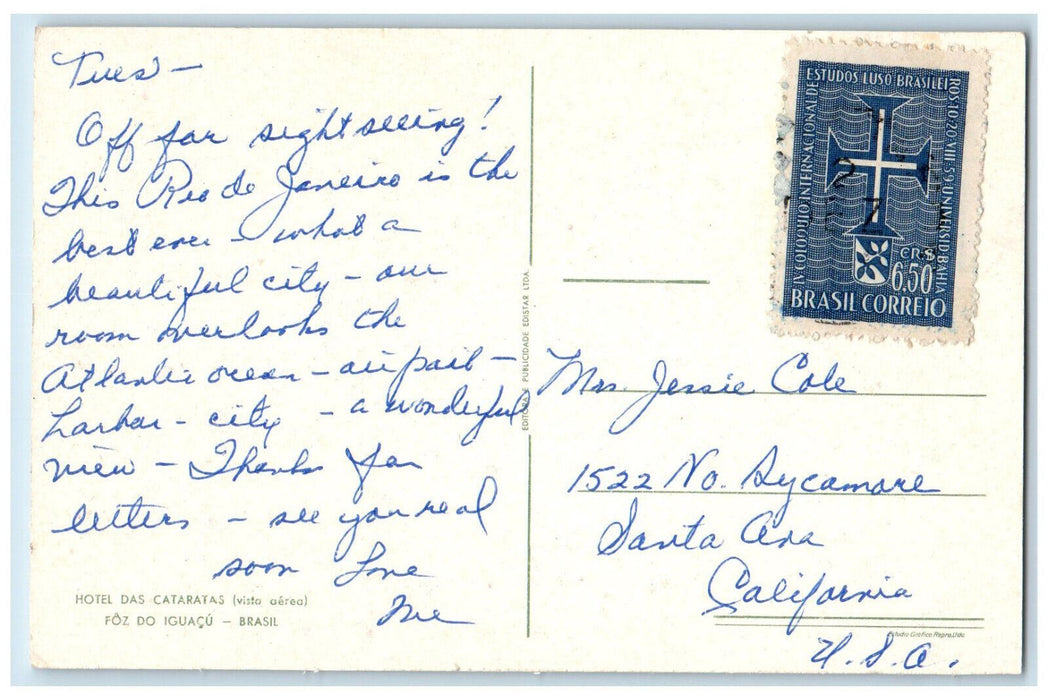 Tues —
Off for sightseeing!
This Rio de Janeiro is the
best ever – what a
beautiful city – our
room overlooks the
Atlantic ocean – air port –
harbor – city – a wonderful
view – Thanks for
letters – see you real
soon Love
Me
HOTEL DAS CATARATAS (vista aérea)
FÔZ DO IGUAÇÚ – BRASIL
EDITORA E PUBLICIDADE EDISTAR LTDA.
IV COLOQUIO INTERNACIONAL DE
ESTUDOS LUSO-BRASILEI
ROS·10/20-VIII-59·UNIVERSID·BAHIA
2
7
CR.$
6.50
BRASIL CORREIO
Mrs. Jessie Cole
1522 No. Sycamore
Santa Ana
California
Estudio Gráfico Repro.Ltda
U.S.A.